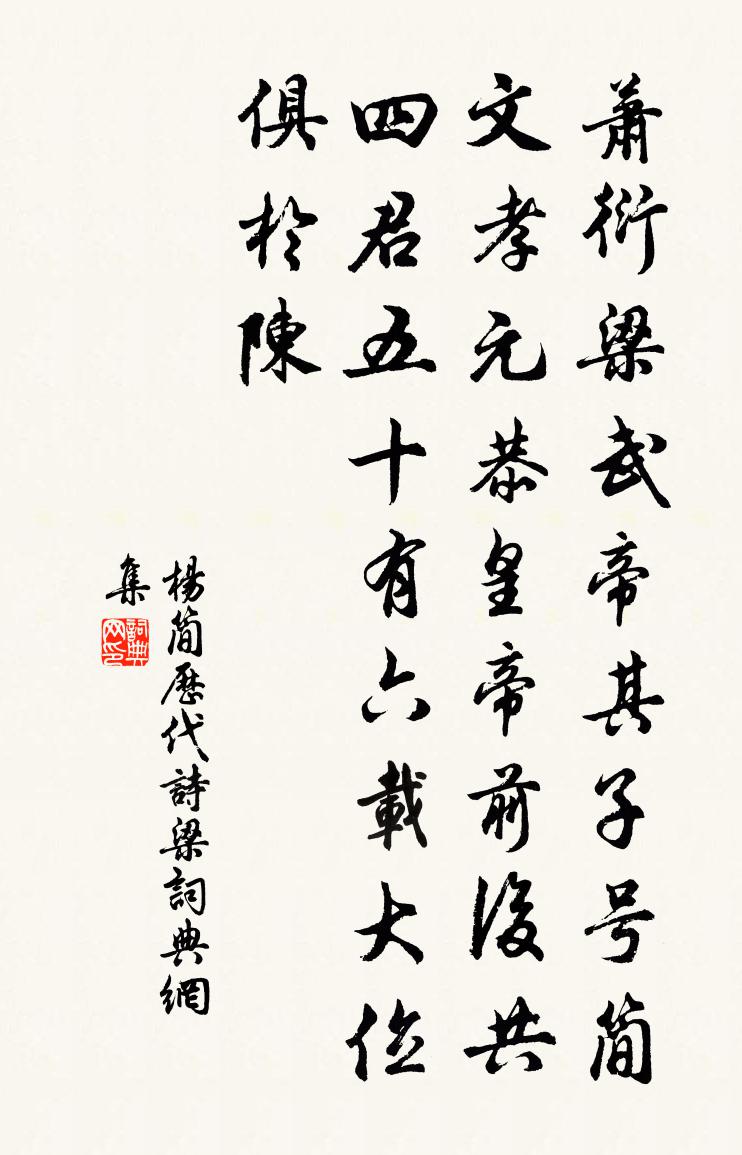 蕭衍梁武帝其子号簡
文孝元恭皇帝前後共
四君五十有六載大位
俱於陳
楊簡歷代詩梁詞典網
集
詞典
网印